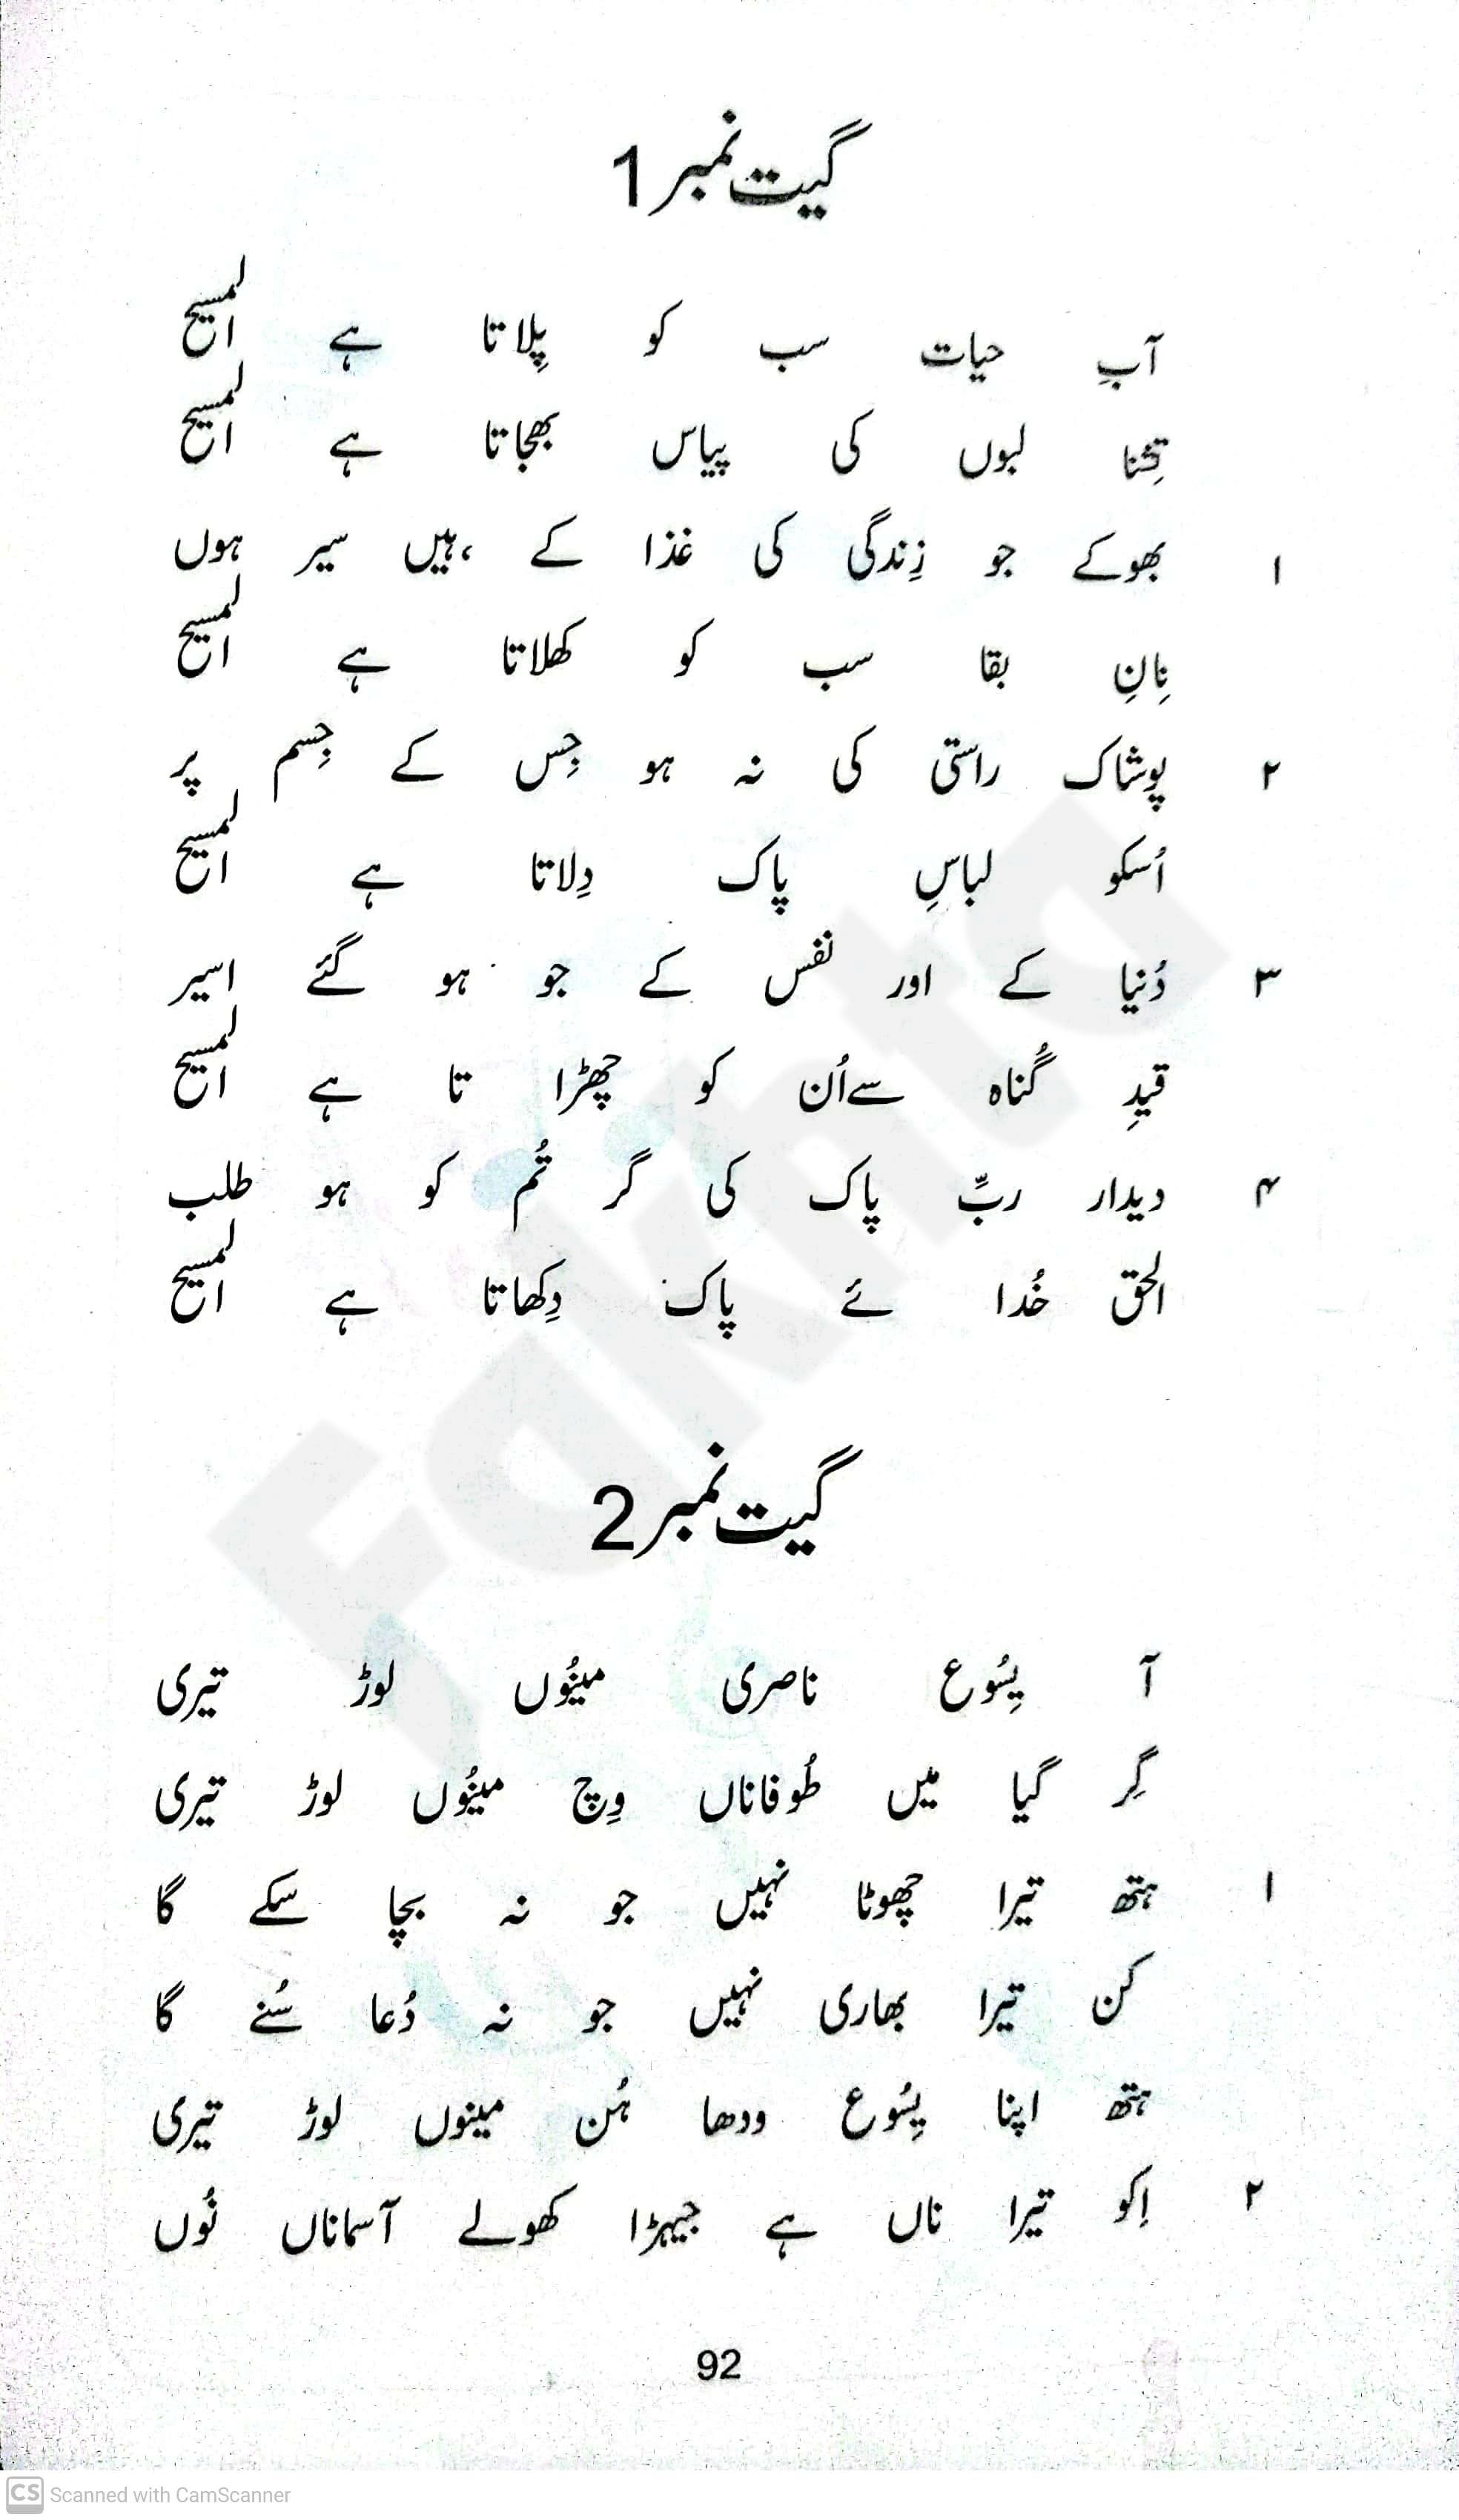 گیت نمبر 1
آبِ حیات سب کو پِلاتا ہے المسیح
تِشنا لبوں کی پیاس بھجاتا ہے المسیح
۱ بھوکے جو زِندگی کی غذا کے ہیں، سیر ہوں
نِانِ بقا سب کو کھلاتا ہے المسیح
۲ پوشاک راستی کی نہ ہو جِس کے جِسم پر
اُسکو لباسِ پاک دِلاتا ہے المسیح
۳ دُنیا کے اور نفس کے جو ہو گئے اسیر
قیدِ گُناہ سے اُن کو چھڑا تا ہے المسیح
۴ دیدار ربِّ پاک کی گر تُم کو ہو طلب
الحق خُدا ئے پاک دِکھاتا ہے المسیح
گیت نمبر 2
آ یِسُوع ناصری مینُوں لوڑ تیری
گِر گیا میں طُوفاناں وِچ مینُوں لوڑ تیری
۱ ہتھ تیرا چھوٹا نہیں جو نہ بچا سکے گا
کن تیرا بھاری نہیں جو نہ دُعا سُنے گا
ہتھ اپنا یِسُوع ودھا ہُن مینوں لوڑ تیری
۲ اِکو تیرا ناں ہے جیہڑا کھولے آسماناں نُوں
92
Fakhta
CS Scanned with CamScanner